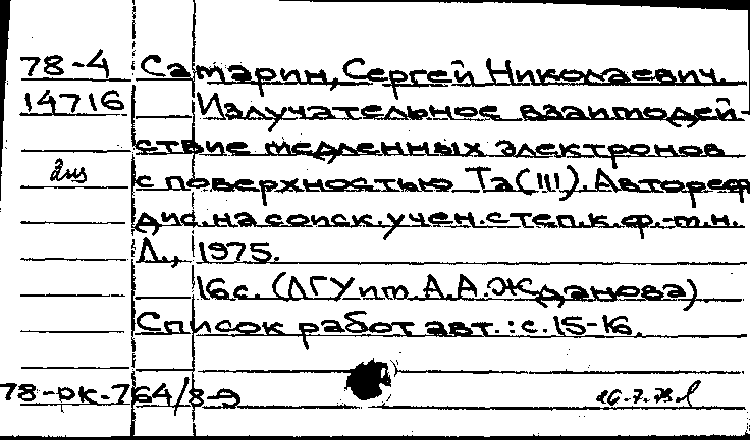 78-4 Сатарин, Сергей Николаевич.
14716 Излучательное взаимодей-
ствие медленных электронов
с поверхностью Ta(III). Автореф
дис. на соиск. учен. степ. к. ф.-т.н.
Л., 1975.
16с. (ЛГУ им. А.А.Жданова)
Список работ авт.: с. 15-16.
78-рк-764/8-Э